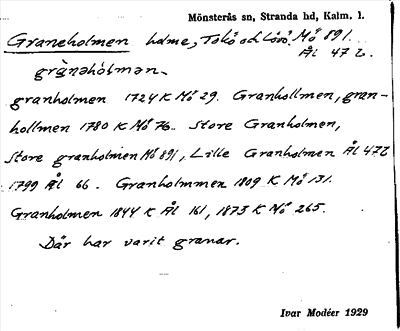 Mönsterås sn, Stranda hd, Kalm. l.
Graneholmen holme, Tokö och Lövö. Mö 891.
Ål 472.
grànəhòlmən.
granholmen 1724 K Mö 29. Granhollmen, gran-
hollmen 1780 K Mö 76. Store Granholmen,
Store granholmen Mö 891, Lille Granholmen Ål 472
1799 Ål 66. Granholmmen 1809 K Mö 131.
Granholmen 1844 K Ål 161, 1873 K Mö 265.
Där har varit granar.
Ivar Modéer 1929